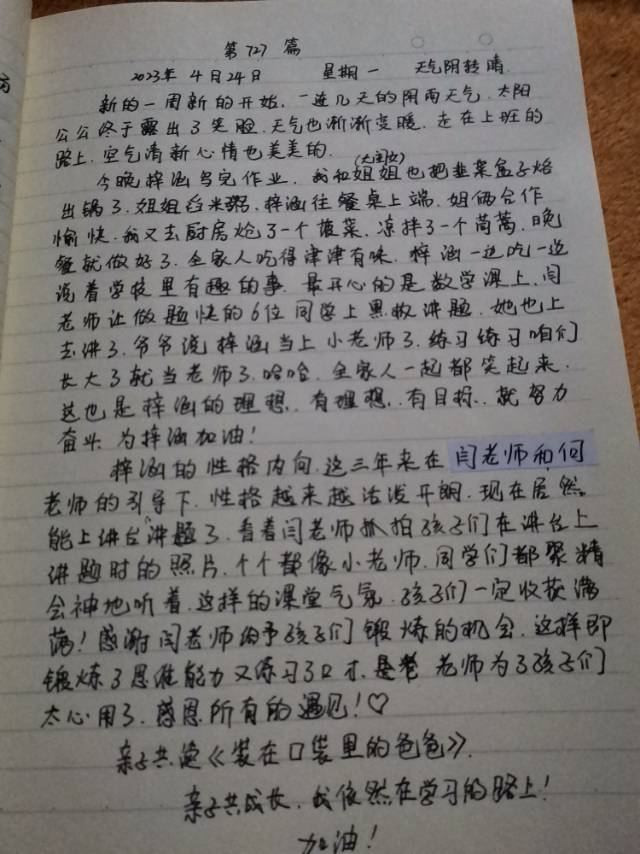 第727篇
2023年4月24日 星期一 天气阴转晴
新的一周新的开始,一连几天的阴雨天气,太阳
公公终于露出了笑脸,天气也渐渐变暖,走在上班的
路上,空气清新心情也美美的.
(大闺女)
今晚梓涵写完作业,我和姐姐也把韭菜盒子烙
出锅了,姐姐舀米粥,梓涵往餐桌上端,姐俩合作
愉快,我又去厨房炝了一个菠菜,凉拌了一个茼蒿,晚
餐就做好了,全家人吃得津津有味,梓涵一边吃一边
说着学校里有趣的事,最开心的是数学课上,闫
老师让做题快的6位同学上黑板讲题,她也上
去讲了,爷爷说梓涵当上小老师了,练习练习咱们
长大了就当老师了,哈哈,全家人一起都笑起来,
这也是梓涵的理想,有理想,有目标,就努力
奋斗,为梓涵加油!
梓涵的性格内向,这三年来在闫老师和何
老师的引导下,性格越来越活泼开朗,现在居然
能上讲台讲题了,看着闫老师抓拍孩子们在讲台上
讲题时的照片,个个都像小老师,同学们都聚精
会神地听着,这样的课堂气氛,孩子们一定收获满
满!感谢闫老师给予孩子们锻炼的机会,这样即
锻炼了思维能力又练习了口才,是 老师为了孩子们
太心用了,感恩所有的遇见!♡
亲子共读《装在口袋里的爸爸》.
亲子共成长,我依然在学习的路上!
加油!